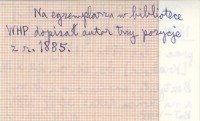 Na egzemplarzu w bibliotece
WHP dopisał autor trzy pozycje
z r. 1885.